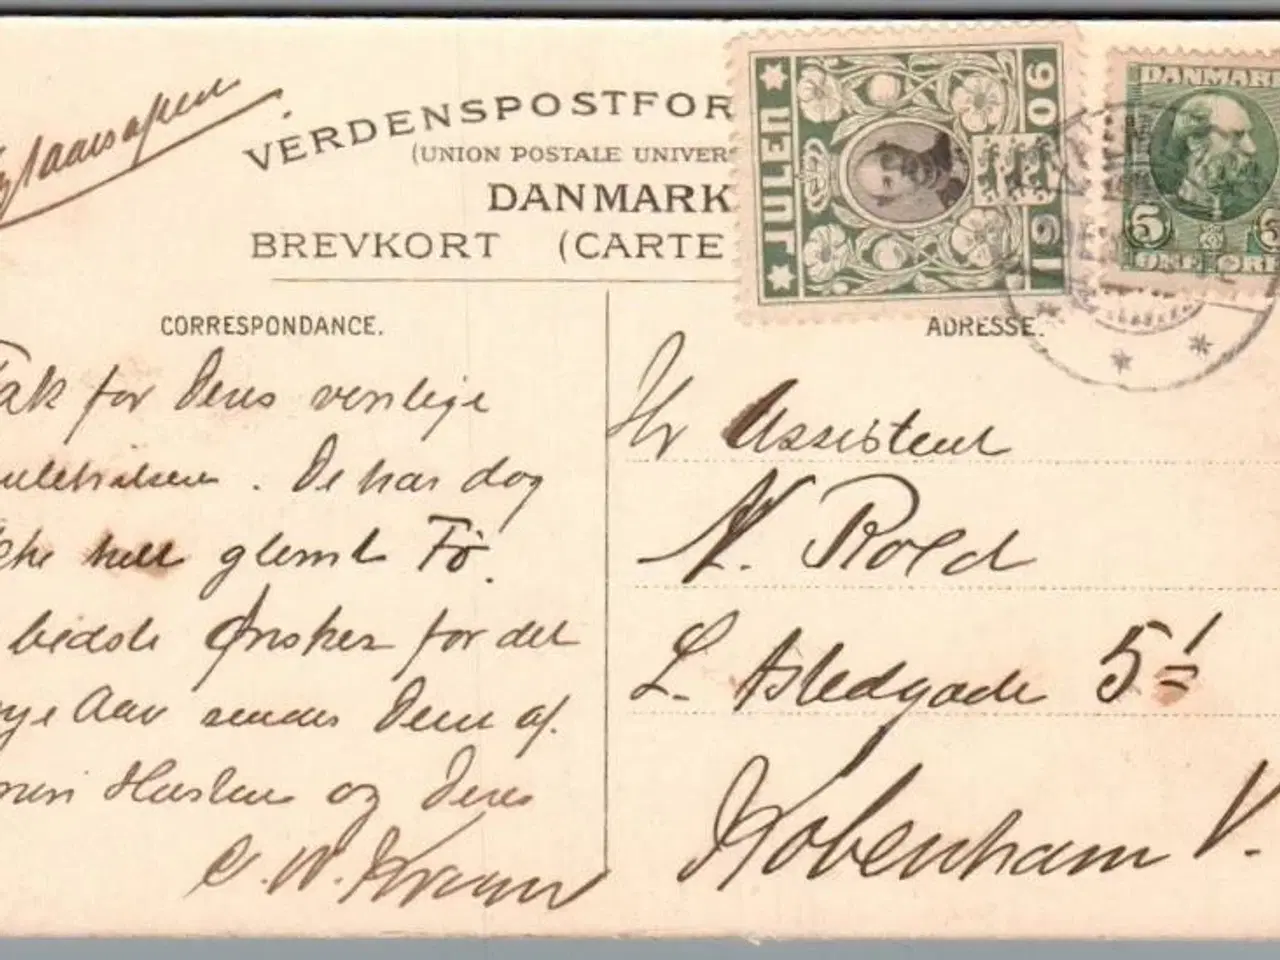 Nytaarsaften
VERDENSPOSTFOR
(UNION POSTALE UNIVERS
DANMARK
BREVKORT (CARTE
JULEN 1906
DANMARK
5 5
ØRE ØRE
CORRESPONDANCE.
ADRESSE.
Tak for Deres venlige
Julehilsen. De har dog
ikke helt glemt Fø.
bedste Ønsker for det
nye Aar sendes Dem af
min Hustru og Deres
C. W. Kramer
Hr Assistent
N. Rold
L. Istedgade 5 1
København V.